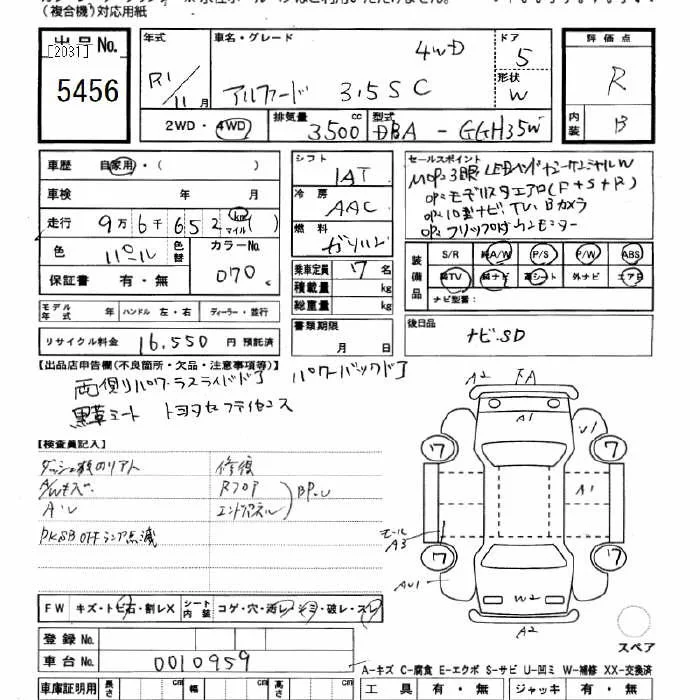 (複合機)対応用紙
出品No.
[2031]
5456
年式
R1/11月
車名・グレード
4WD
アルファード 3.5SC
ドア
5
形状
W
評価点
R
内装
B
2WD・4WD
排気量
3500cc
型式
DBA-GGH35W
車歴 自家用・( )
車検 年 月
走行 9万6千652 km マイル ( )
色 パール 色替 カラーNo. 070
保証書 有・無
モデル年式 年 ハンドル 左・右 ディーラー・並行
リサイクル料金 16,550 円 預託済
シフト
IAT
冷房
AAC
燃料
ガソリン
乗車定員 7名
積載量 kg
総重量 kg
書類期限
月 日
セールスポイント
OP:モデリスタエアロ(F+S+R)
OP:10型ナビTV Bカメラ
OP:フリップダウンモニター
装備品
S/R 純A/W P/S P/W ABS
純TV 純ナビ 革シート 外ナビ エアB
ナビ型番:
後日品
ナビSD
【出品店申告欄(不良箇所・欠品・注意事項等)】
両側パワースライドドア パワーバックドア
黒革シート トヨタセーフティセンス
【検査員記入】
修復
Rフロア
エンドパネル
BP.U
PKSB OFF ランプ点滅
FW キズ・トビ石・割レX シート内装 コゲ・穴・汚レ・シミ・破レ・スレ
登録No.
車台No. 0010959
車庫証明用 長さ cm 幅 cm 高さ cm
A2
A1
U1
7
7
A1
モール
A3
7
7
AU1
W2
A2
スペア
A-キズ C-腐食 E-エクボ S-サビ U-凹ミ W-補修 XX-交換済
工具 有・無 ジャッキ 有・無